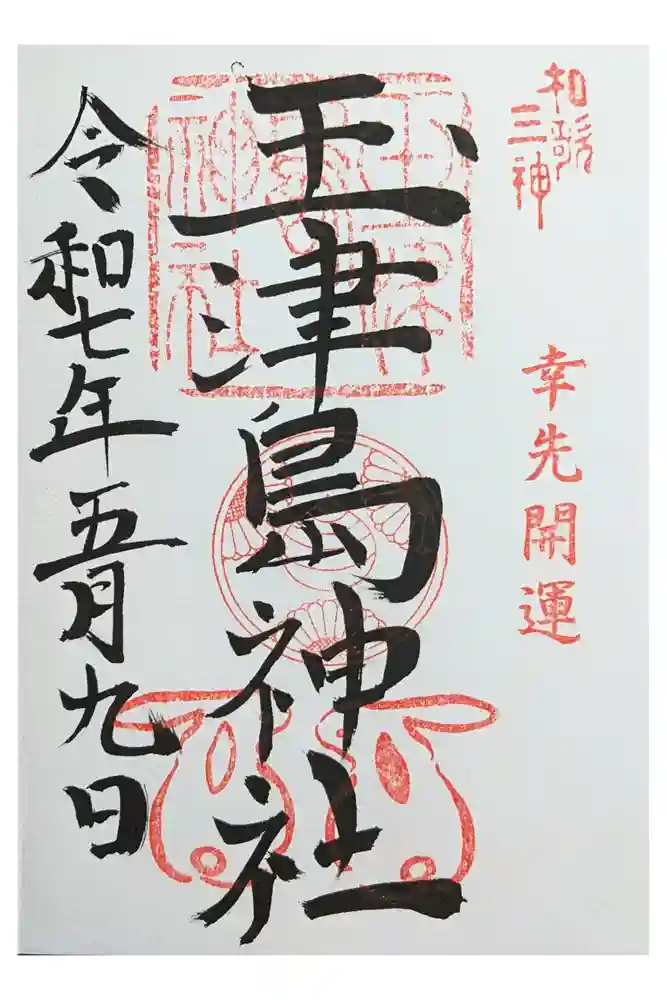 和歌
三神
幸先開運
玉津島神社
玉津島神社
令和七年五月九日